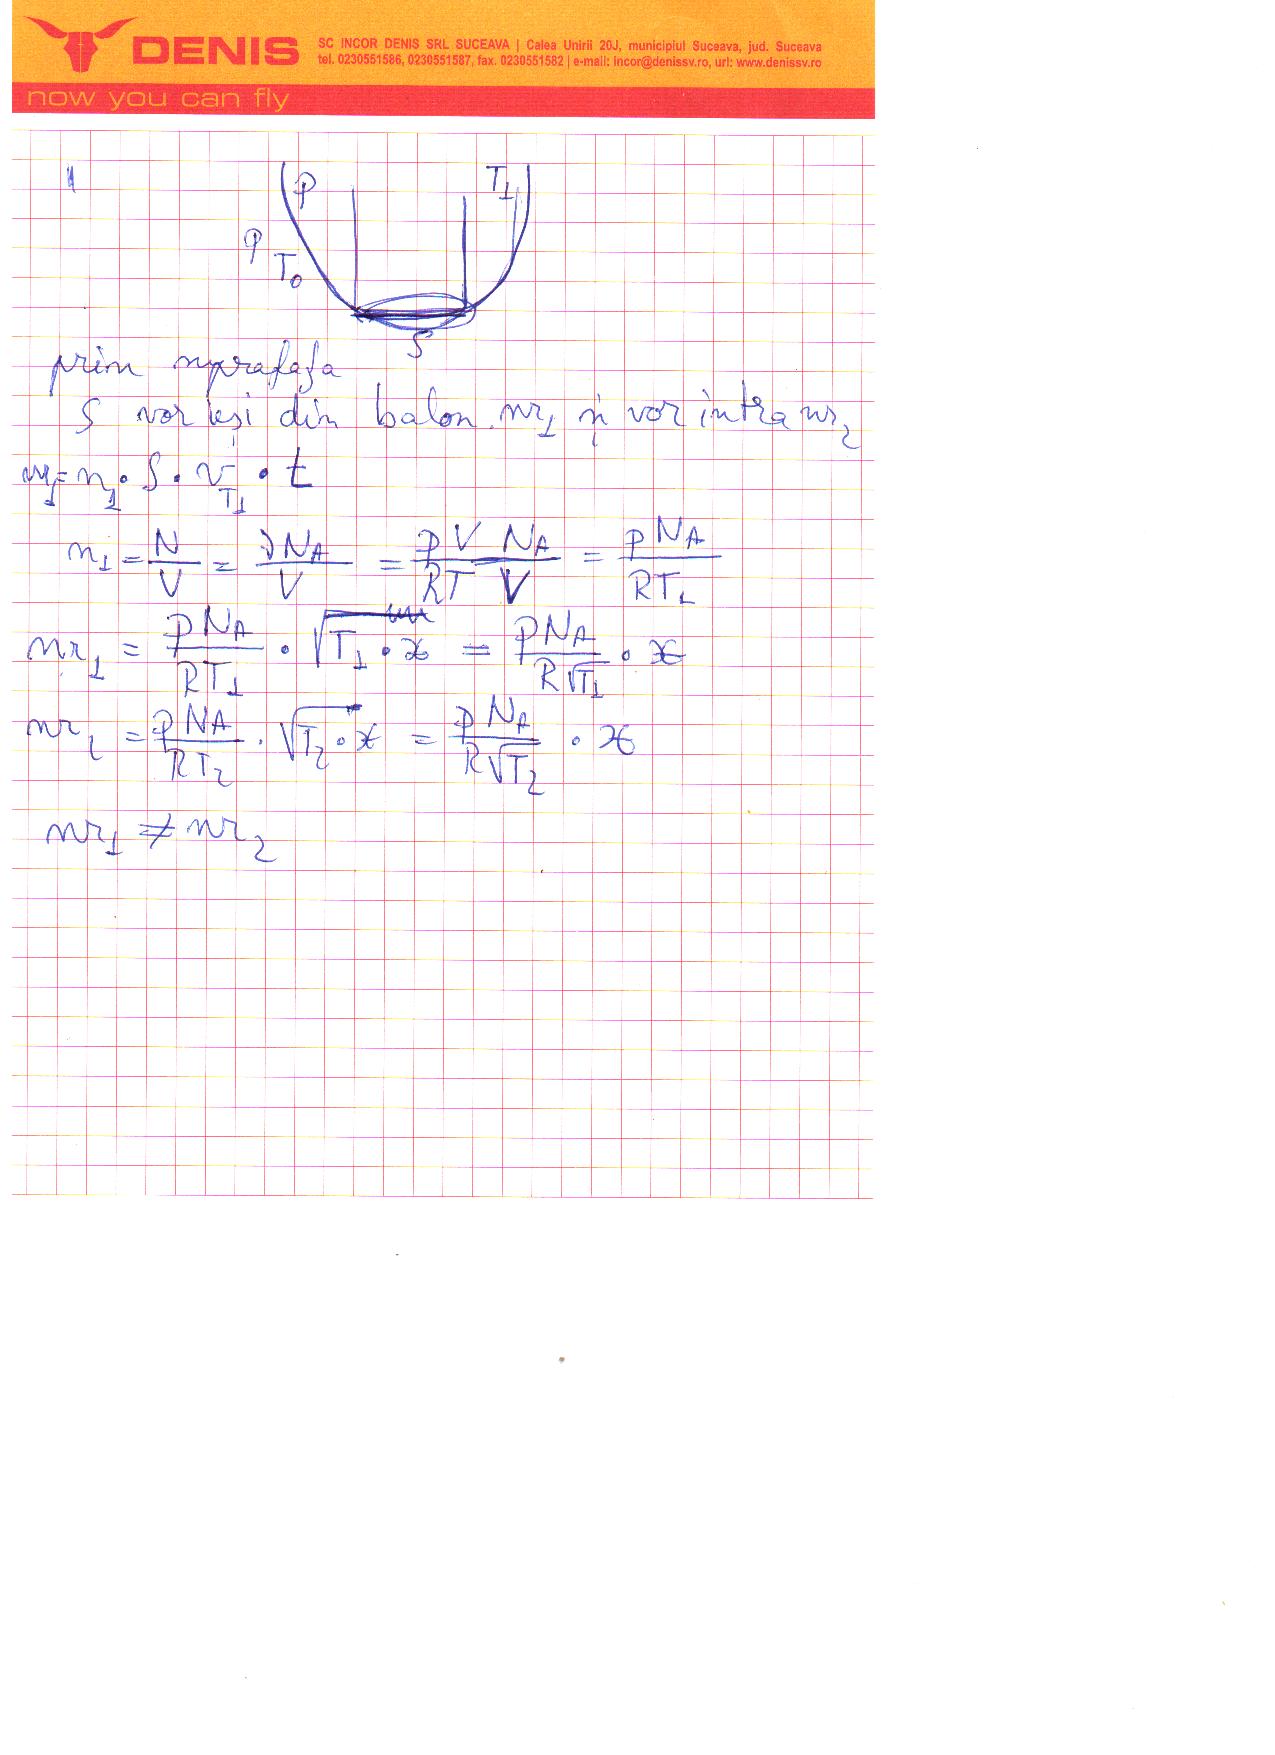 DENIS
SC INCOR DENIS SRL SUCEAVA | Calea Unirii 20J, municipiul Suceava, jud. Suceava
tel. 0230551586, 0230551587, fax. 0230551582 | e-mail: incor@denissv.ro, url: www.denissv.ro
now you can fly
1
p T₁
p T₀
S
prin suprafața
S vor ieși din balon nr₁ și vor intra nr₂
nr₁ = n₁ · S · v_T₁ · t
n₁ = N/V = νN_A/V = pV N_A/(RT V) = pN_A/(RT₁)
nr₁ = pN_A/(RT₁) · √(T₁ · x) = pN_A/(R√T₁) · x
nr₂ = pN_A/(RT₂) · √(T₂ · x) = pN_A/(R√T₂) · x
nr₁ ≠ nr₂